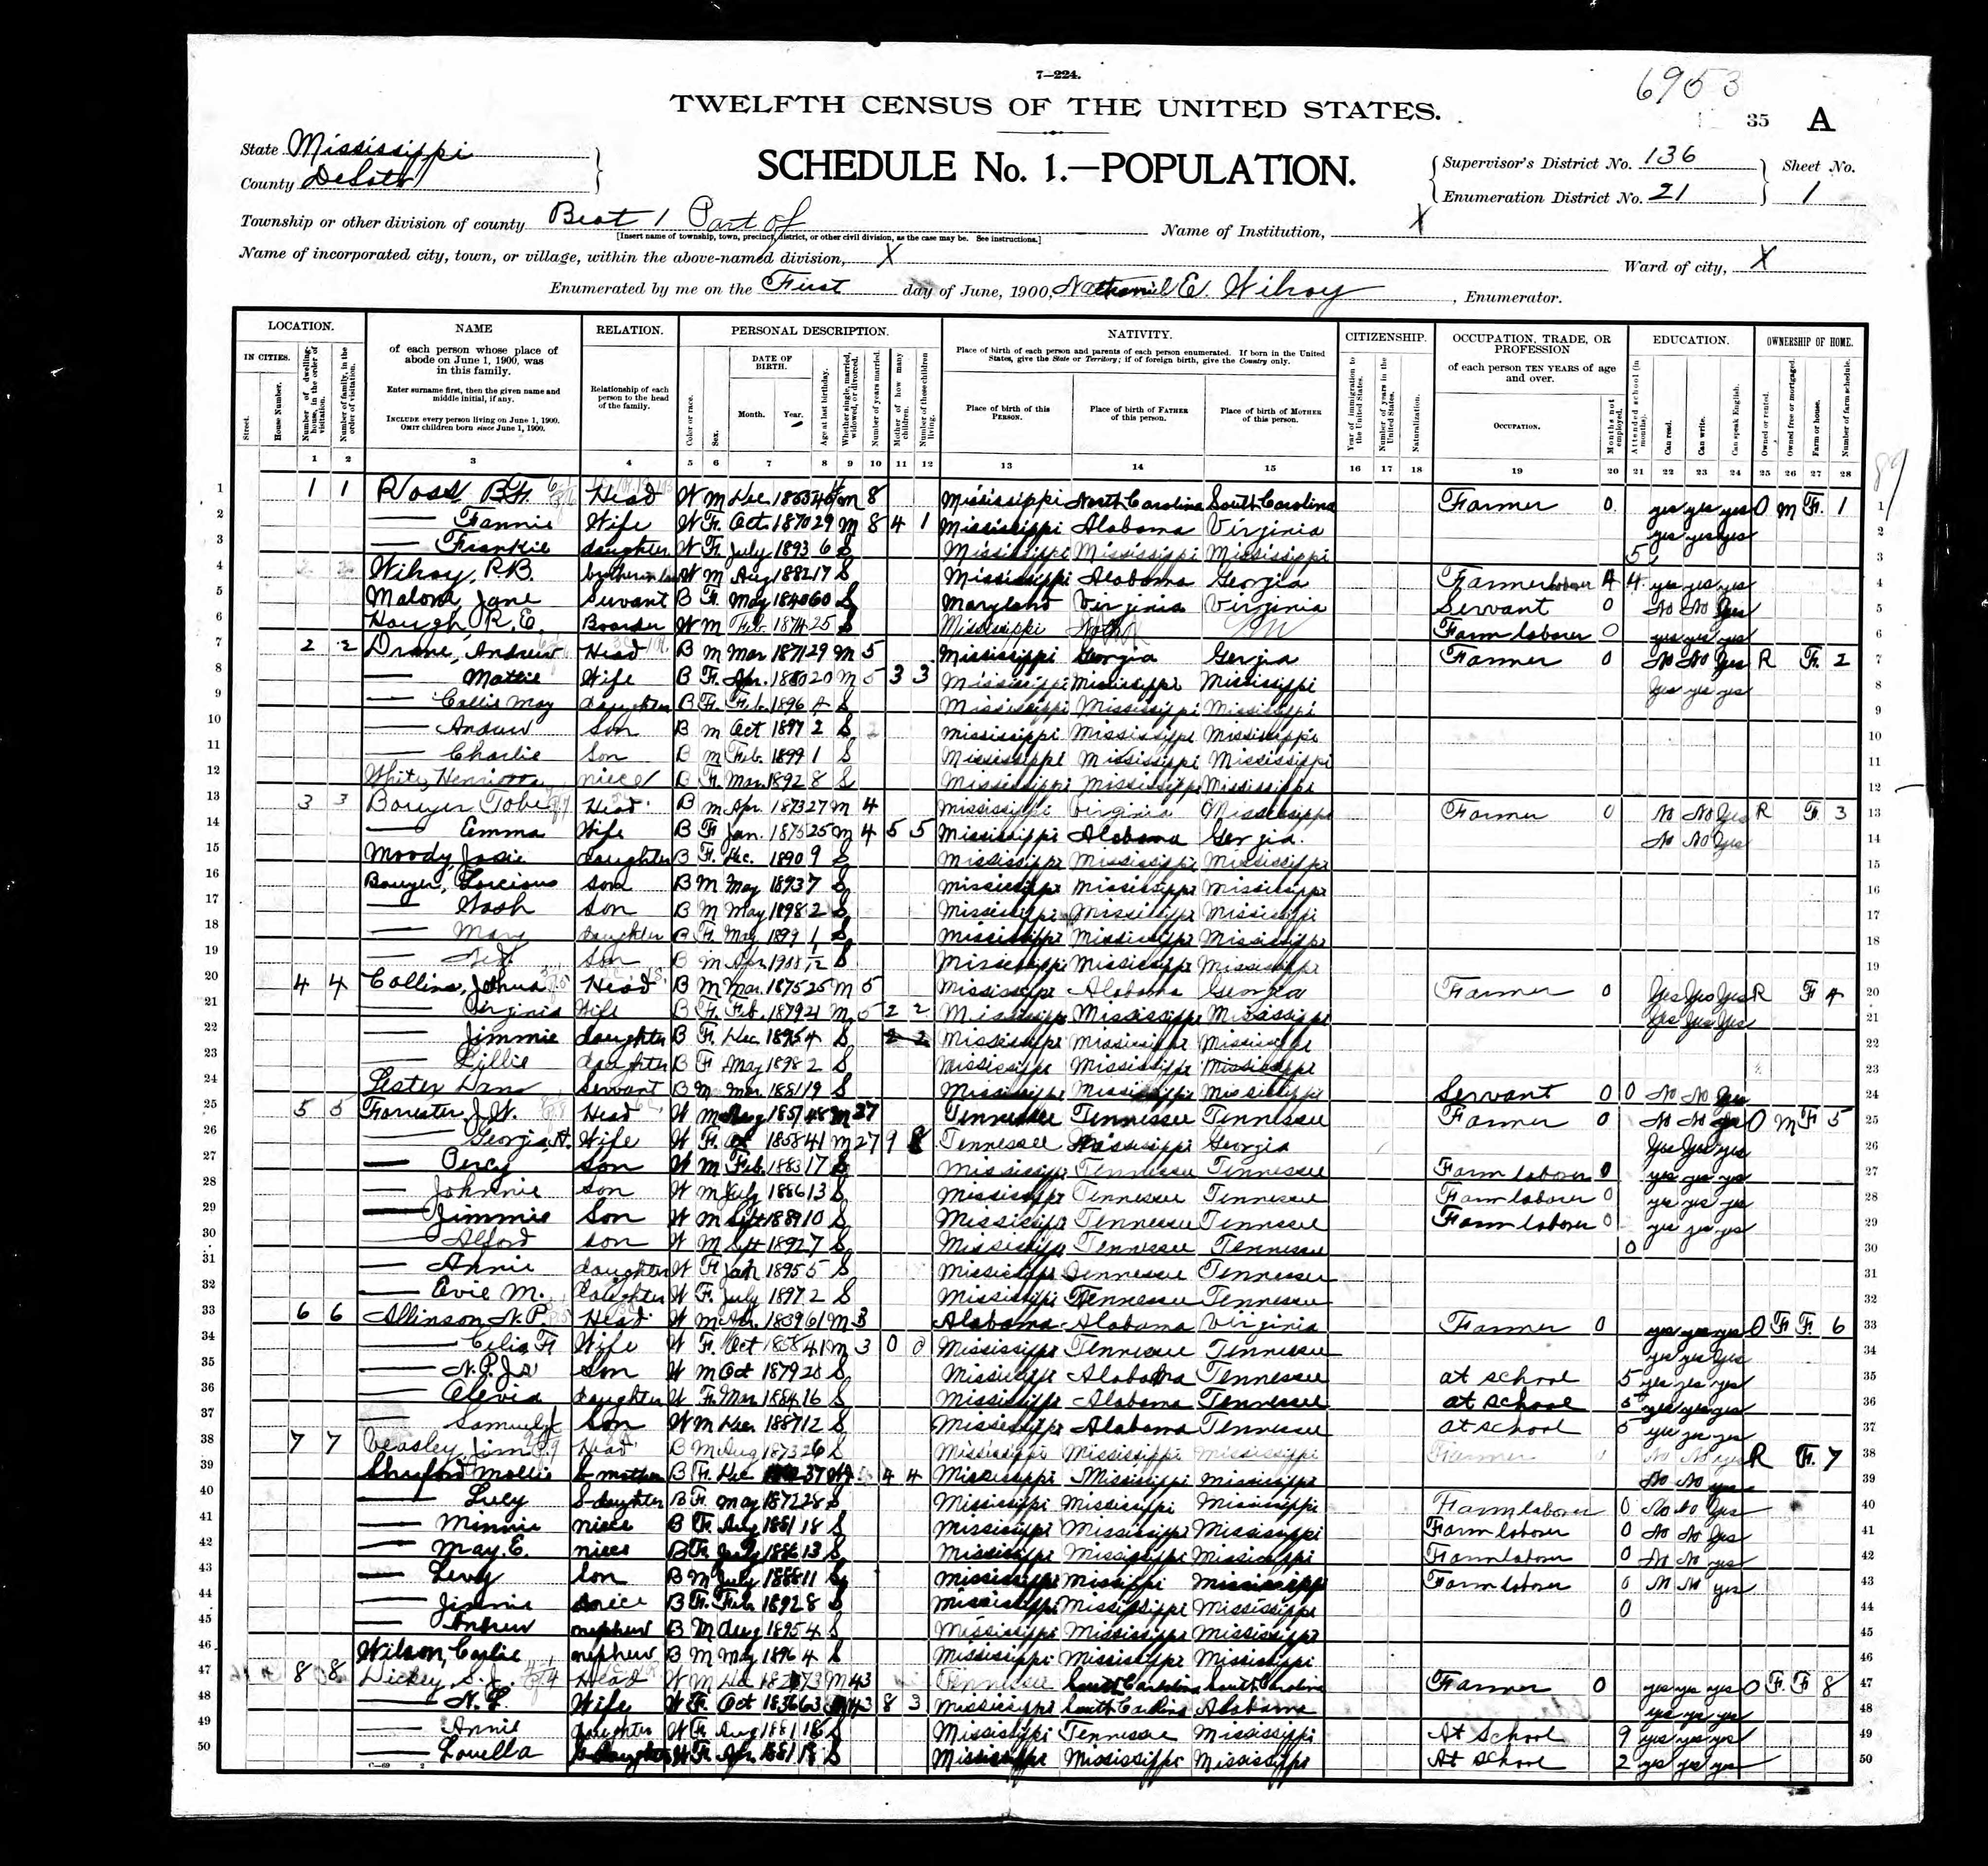 7—224.
6953
TWELFTH CENSUS OF THE UNITED STATES.
35 A
State Mississippi
County DeSoto
SCHEDULE No. 1.—POPULATION.
Supervisor's District No. 136
Enumeration District No. 21
Sheet No. 1
Township or other division of county Beat 1 Part of
[Insert name of township, town, precinct, district, or other civil division, as the case may be. See instructions.]
Name of Institution, X
Name of incorporated city, town, or village, within the above-named division, X
Ward of city, X
Enumerated by me on the First day of June, 1900, E. Wilroy, Enumerator.
89
LOCATION. NAME RELATION. PERSONAL DESCRIPTION. NATIVITY. CITIZENSHIP. OCCUPATION, TRADE, OR PROFESSION EDUCATION. OWNERSHIP OF HOME.
IN CITIES. Street. House Number. Number of dwelling-house, in the order of visitation. Number of family, in the order of visitation.
of each person whose place of abode on June 1, 1900, was in this family.
Enter surname first, then the given name and middle initial, if any.
INCLUDE every person living on June 1, 1900. OMIT children born since June 1, 1900.
Relationship of each person to the head of the family.
Color or race. Sex. DATE OF BIRTH. Month. Year. Age at last birthday. Whether single, married, widowed, or divorced. Number of years married. Mother of how many children. Number of these children living.
Place of birth of each person and parents of each person enumerated. If born in the United States, give the State or Territory; if of foreign birth, give the Country only.
Place of birth of this PERSON. Place of birth of FATHER of this person. Place of birth of MOTHER of this person.
Year of immigration to the United States. Number of years in the United States. Naturalization.
of each person TEN YEARS of age and over.
OCCUPATION. Months not employed.
Attended school (in months). Can read. Can write. Can speak English.
Owned or rented. Owned free or mortgaged. Farm or house. Number of farm schedule.
1 2 3 4 5 6 7 8 9 10 11 12 13 14 15 16 17 18 19 20 21 22 23 24 25 26 27 28
1 1 1 Head W M Dec M 8 Mississippi North Carolina South Carolina Farmer 0 yes yes yes O M F. 1 1
2 — Fannie Wife W F. Oct. 1870 29 M 8 4 1 Mississippi Alabama Virginia yes yes yes 2
3 — Frankie daughter W F. July 1893 6 S Mississippi Mississippi Mississippi 5 3
4 Wilroy, R.B. W M Aug 1882 17 S Mississippi Alabama Georgia Farm laborer 4 4 yes yes yes 4
5 Malone, Jane Servant B F. May 1840 60 S Maryland Virginia Virginia Servant 0 No No yes 5
6 Hough, R.E. Boarder W M Feb. 1874 25 S Mississippi Farm laborer 0 yes yes yes 6
7 2 2 Drane, Andrew Head B M Mar 1871 29 M 5 Mississippi Georgia Georgia Farmer 0 No No yes R F. 2 7
8 — Mattie Wife B F. Apr. 1880 20 M 5 3 3 Mississippi Mississippi Mississippi yes yes yes 8
9 — Callie May daughter B F. Feb. 1896 4 S Mississippi Mississippi Mississippi 9
10 — Andrew Son B M Oct 1897 2 S Mississippi Mississippi Mississippi 10
11 — Charlie Son B M Feb. 1899 1 S Mississippi Mississippi Mississippi 11
12 White, Henrietta niece B F. Mar. 1892 8 S Mississippi Mississippi Mississippi 12
13 3 3 Bowyer Tobe Head B M Apr. 1873 27 M 4 Mississippi Virginia Mississippi Farmer 0 No No yes R F. 3 13
14 — Emma Wife B F Jan. 1875 25 M 4 5 5 Mississippi Alabama Georgia. No No yes 14
15 Moody, Josie daughter B F. Dec. 1890 9 S Mississippi Mississippi Mississippi 15
16 Bowyer, Son B M May 1893 7 S Mississippi Mississippi Mississippi 16
17 — Wash Son B M May 1898 2 S Mississippi Mississippi Mississippi 17
18 — Mary daughter B F. May 1899 1 S Mississippi Mississippi Mississippi 18
19 — Son B M Apr 1900 1/12 S Mississippi Mississippi Mississippi 19
20 4 4 Collins, Head B M Mar. 1875 25 M 5 Mississippi Alabama Georgia Farmer 0 yes yes yes R F 4 20
21 — Virginia Wife B F. Feb. 1879 21 M 5 2 2 Mississippi Mississippi Mississippi yes yes yes 21
22 — Jimmie daughter B F. Dec 1895 4 S 2 2 Mississippi Mississippi Mississippi 22
23 — Lillie daughter B F May 1898 2 S Mississippi Mississippi Mississippi 23
24 Lester Dan Servant B M Mar. 1881 19 S Mississippi Mississippi Mississippi Servant 0 0 No No yes 24
25 5 5 Forrester, J.W. Head W M Aug 1851 48 M 27 Tennessee Tennessee Tennessee Farmer 0 No No yes O M F 5 25
26 — Georgia A. Wife W F. 1858 41 M 27 9 8 Tennessee Mississippi Georgia yes yes yes 26
27 — Percy Son W M Feb. 1883 17 S Mississippi Tennessee Tennessee Farm laborer 0 yes yes yes 27
28 — Johnnie Son W M July 1886 13 S Mississippi Tennessee Tennessee Farm laborer 0 yes yes yes 28
29 — Jimmie Son W M Sept 1889 10 S Mississippi Tennessee Tennessee Farm laborer 0 yes yes yes 29
30 — Alford Son W M Sept 1892 7 S Mississippi Tennessee Tennessee 0 30
31 — Annie daughter W F Jan 1895 5 S Mississippi Tennessee Tennessee 31
32 — Evie M. daughter W F. July 1897 2 S Mississippi Tennessee Tennessee 32
33 6 6 Allinson, N.P. Head W M Apr. 1839 61 M 3 Alabama Alabama Virginia Farmer 0 yes yes yes O F F. 6 33
34 — Celia F. Wife W F. Oct 1858 41 M 3 0 0 Mississippi Tennessee Tennessee yes yes yes 34
35 — N.P. Jr Son W M Oct 1879 20 S Mississippi Alabama Tennessee at school 5 yes yes yes 35
36 — Alevia daughter W F. Mar 1884 16 S Mississippi Alabama Tennessee at school 5 yes yes yes 36
37 — Samuel Son W M Dec 1887 12 S Mississippi Alabama Tennessee at school 5 yes yes yes 37
38 7 7 Veasley, Jim Head B M Aug 1873 26 S Mississippi Mississippi Mississippi Farmer No No yes R F. 7 38
39 Mollie B F. Dec 37 4 4 Mississippi Mississippi Mississippi No No yes 39
40 — Lucy S-daughter B F. May 1872 28 S Mississippi Mississippi Mississippi Farm laborer 0 No No yes 40
41 — Minnie niece B F. Aug 1881 18 S Mississippi Mississippi Mississippi Farm laborer 0 No No yes 41
42 — May E. niece B F. July 1886 13 S Mississippi Mississippi Mississippi Farm laborer 0 No No yes 42
43 — Levy Son B M July 1888 11 S Mississippi Mississippi Mississippi Farm laborer 0 No No yes 43
44 — Jimmie niece B F. Feb. 1892 8 S Mississippi Mississippi Mississippi 0 44
45 — Andrew nephew B M Aug 1895 4 S Mississippi Mississippi Mississippi 45
46 Wilson, nephew B M May 1896 4 S Mississippi Mississippi Mississippi 46
47 8 8 Dickey, S.J. Head W M Dec 73 M 43 Tennessee South Carolina South Carolina Farmer 0 yes yes yes O F. F 8 47
48 — N.L. Wife W F. Oct 1836 63 M 43 8 3 Mississippi South Carolina Alabama yes yes yes 48
49 — Annie daughter W F. Aug 1881 18 S Mississippi Tennessee Mississippi At School 9 yes yes yes 49
50 — Louella W F. Apr. 1881 19 S Mississippi Mississippi Mississippi At School 2 yes yes yes 50
C—69 2